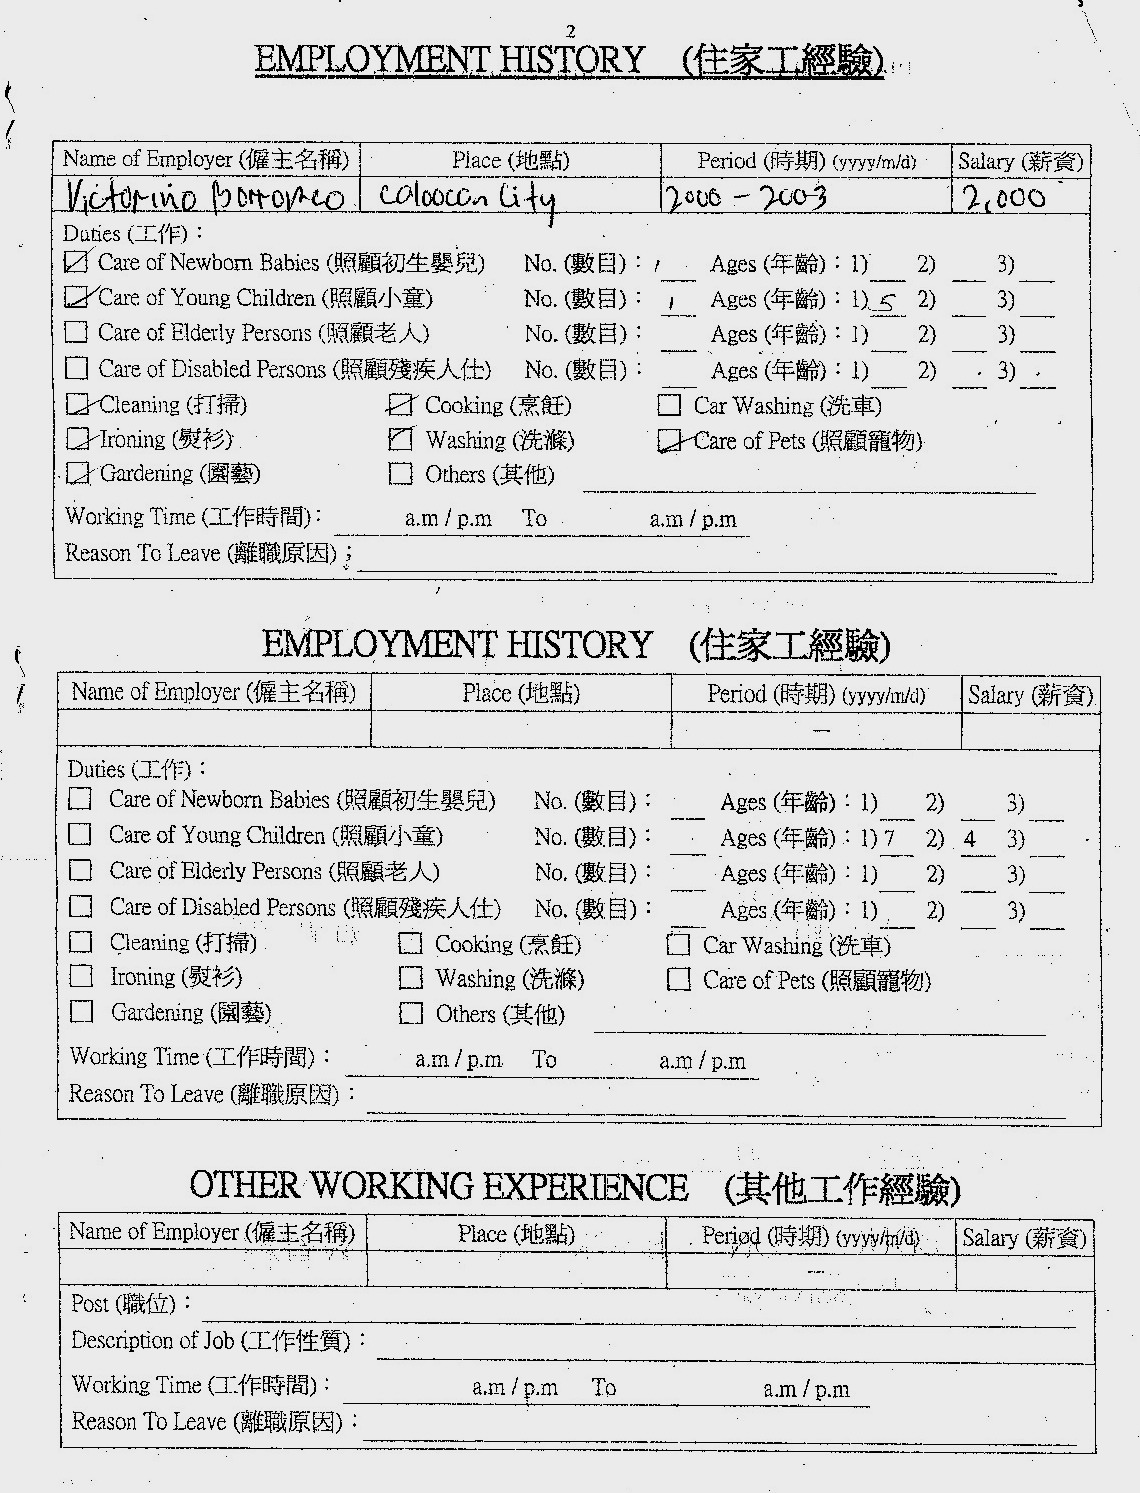 2
EMPLOYMENT HISTORY (住家工經驗)
Name of Employer (僱主名稱) Place (地點) Period (時期) (yyyy/m/d) Salary (薪資)
Victorino Borromeo Caloocan City 2000 - 2003 2,000
Duties (工作) :
☑ Care of Newborn Babies (照顧初生嬰兒) No. (數目) : 1 Ages (年齡) : 1) 2) 3)
☑ Care of Young Children (照顧小童) No. (數目) : 1 Ages (年齡) : 1) 5 2) 3)
☐ Care of Elderly Persons (照顧老人) No. (數目) : Ages (年齡) : 1) 2) 3)
☐ Care of Disabled Persons (照顧殘疾人仕) No. (數目) : Ages (年齡) : 1) 2) 3)
☑ Cleaning (打掃) ☑ Cooking (烹飪) ☐ Car Washing (洗車)
☑ Ironing (熨衫) ☑ Washing (洗滌) ☑ Care of Pets (照顧寵物)
☑ Gardening (園藝) ☐ Others (其他)
Working Time (工作時間) : a.m / p.m To a.m / p.m
Reason To Leave (離職原因) :
EMPLOYMENT HISTORY (住家工經驗)
Name of Employer (僱主名稱) Place (地點) Period (時期) (yyyy/m/d) Salary (薪資)
–
Duties (工作) :
☐ Care of Newborn Babies (照顧初生嬰兒) No. (數目) : Ages (年齡) : 1) 2) 3)
☐ Care of Young Children (照顧小童) No. (數目) : Ages (年齡) : 1) 7 2) 4 3)
☐ Care of Elderly Persons (照顧老人) No. (數目) : Ages (年齡) : 1) 2) 3)
☐ Care of Disabled Persons (照顧殘疾人仕) No. (數目) : Ages (年齡) : 1) 2) 3)
☐ Cleaning (打掃) ☐ Cooking (烹飪) ☐ Car Washing (洗車)
☐ Ironing (熨衫) ☐ Washing (洗滌) ☐ Care of Pets (照顧寵物)
☐ Gardening (園藝) ☐ Others (其他)
Working Time (工作時間) : a.m / p.m To a.m / p.m
Reason To Leave (離職原因) :
OTHER WORKING EXPERIENCE (其他工作經驗)
Name of Employer (僱主名稱) Place (地點) Period (時期) (yyyy/m/d) Salary (薪資)
–
Post (職位) :
Description of Job (工作性質) :
Working Time (工作時間) : a.m / p.m To a.m / p.m
Reason To Leave (離職原因) :